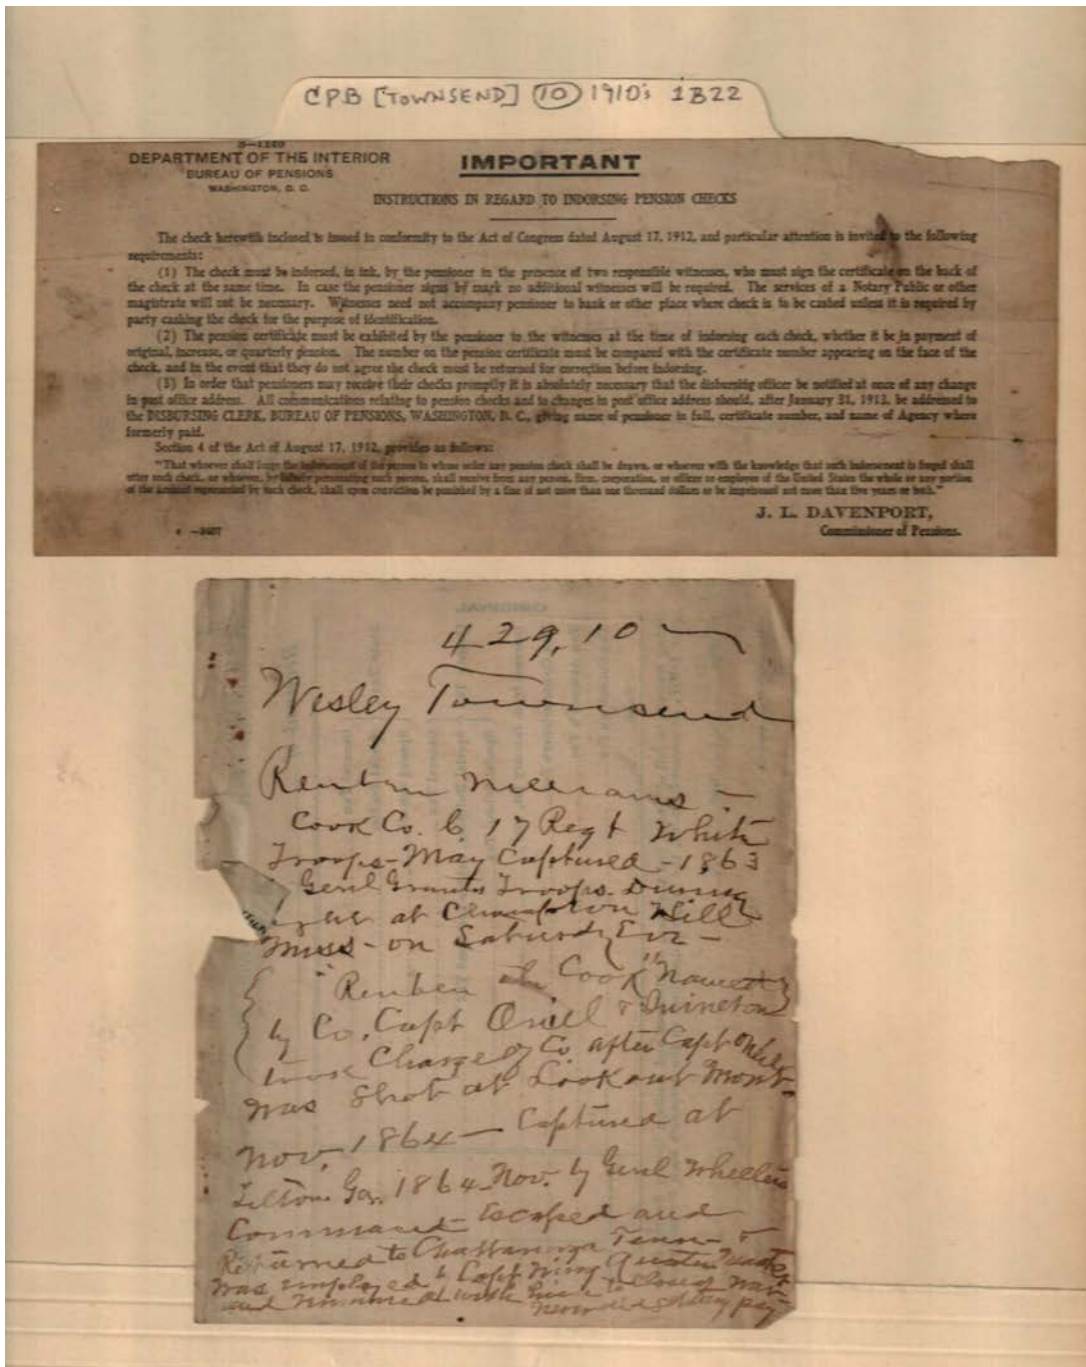 CPB [TOWNSEND] 10 1910's 1B22
3—1140
DEPARTMENT OF THE INTERIOR
BUREAU OF PENSIONS
WASHINGTON, D. C.
IMPORTANT
INSTRUCTIONS IN REGARD TO INDORSING PENSION CHECKS
The check herewith inclosed is issued in conformity to the Act of Congress dated August 17, 1912, and particular attention is invited to the following
requirements:
(1) The check must be indorsed, in ink, by the pensioner in the presence of two responsible witnesses, who must sign the certificate on the back of
the check at the same time. In case the pensioner signs by mark no additional witnesses will be required. The services of a Notary Public or other
magistrate will not be necessary. Witnesses need not accompany pensioner to bank or other place where check is to be cashed unless it is required by
party cashing the check for the purpose of identification.
(2) The pension certificate must be exhibited by the pensioner to the witnesses at the time of indorsing each check, whether it be in payment of
original, increase, or quarterly pension. The number on the pension certificate must be compared with the certificate number appearing on the face of the
check, and in the event that they do not agree the check must be returned for correction before indorsing.
(3) In order that pensioners may receive their checks promptly it is absolutely necessary that the disbursing officer be notified at once of any change
in post office address. All communications relating to pension checks and to changes in post office address should, after January 31, 1913, be addressed to
the DISBURSING CLERK, BUREAU OF PENSIONS, WASHINGTON, D. C., giving name of pensioner in full, certificate number, and name of Agency where
formerly paid.
Section 4 of the Act of August 17, 1912, provides as follows:
"That whoever shall forge the indorsement of the person to whose order any pension check shall be drawn, or whoever with the knowledge that such indorsement is forged shall
utter such check, or whoever, by falsely personating such person, shall receive from any person, firm, corporation, or officer or employee of the United States the whole or any portion
of the amount represented by such check, shall upon conviction be punished by a fine of not more than one thousand dollars or be imprisoned not more than five years or both."
J. L. DAVENPORT,
Commissioner of Pensions.
ORIGINAL
429,10
Wesley Townsend
Reuben Williams —
Cook Co. C. 17 Regt White
Troops - May Captured - 1863
Genl Grants Troops. During
at Champion Hill
Miss - on Saturdy Eve -
"Reuben the Cook" Named
by Co, Capt Oneil &
took Charge of Co. after Capt Oneil
was Shot at Lookout Mont
Nov, 1864 — Captured at
Tilton Ga. 1864 Nov. by Genl Wheelers
Command - Escaped and
Returned to Chattanooga Tenn - &
was employed by Capt Quarter Master
and with him to close of War
pay